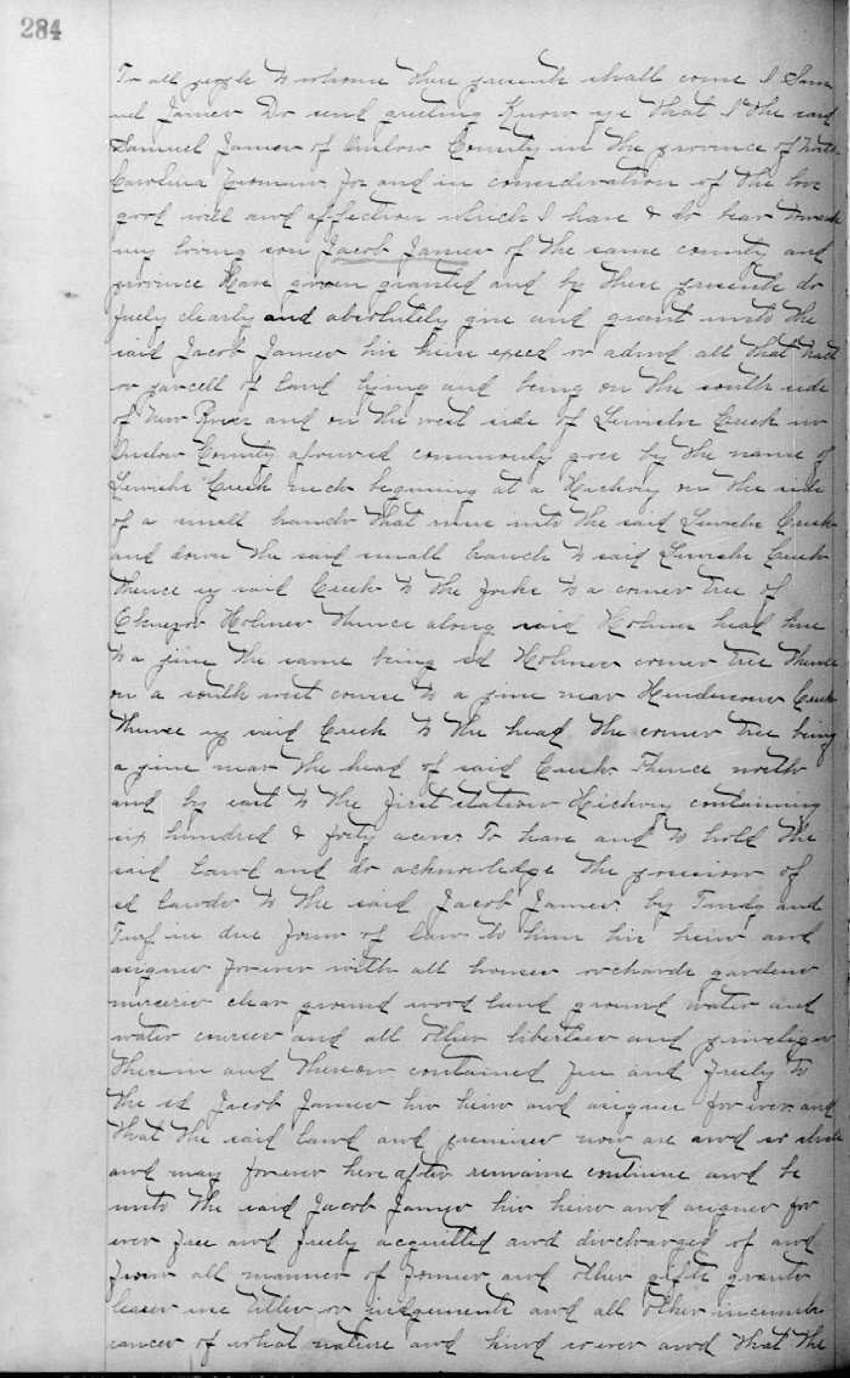 284
To all people to whome these presents shall come I Sam
uel James Do send greeting Know ye that I the said
Samuel James of Onslow County in the province of North
Carolina for and in consideration of the love
good will and affection which I have & do bear towards
my loving son Jacob James of the same county and
province Have given granted and by these presents do
freely clearly and absolutely give and grant unto the
said Jacob James his heirs exced or admd all that tract
or parcell of land lying and being on the south side
of New River and on the west side of Creek in
Onslow County aforesaid commonly goes by the name of
Creek neck beginning at a Hickory on the side
of a small branch that runs into the said Creek
and down the said small branch to said Creek
thence up said Creek to the forks to a corner tree of
Ebenezor Holmes thence along said Holmes head line
to a pine the same being sd Holmes corner tree thence
on a south west course to a pine near Hendersons Creek
thence up said Creek to the head the corner tree being
a pine near the head of said Creek Thence north
and by east to the first station Hickory containing
six hundred & forty acres To have and to hold the
said Land and do acknowledge the possesion of
sd lands to the said Jacob James by and
Turf in due form of law to him his heirs and
assignes forever with all houses orchards gardens
clear ground wood land ground water and
water courses and all other liberties and
therein and thereon contained free and freely to
the sd Jacob James his heirs and assignes forever and
that the said land and premises now are and so shall
and may forever here after remaine continue and be
unto the said Jacob James his heirs and assignes for
ever free and freely acquitted and discharged of and
from all manner of former and other gifts grants
leases use titles or judgements and all other incumb
rances of what nature and kind so ever and that the